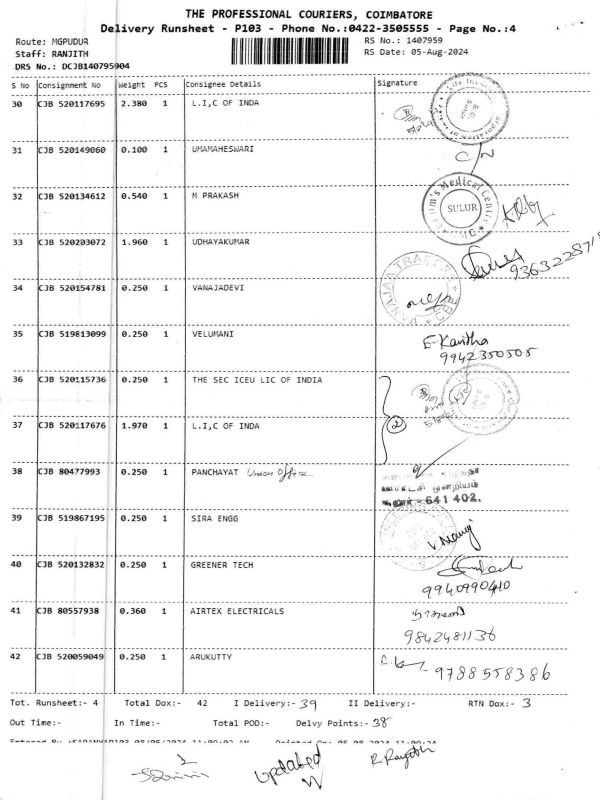 THE PROFESSIONAL COURIERS, COIMBATORE
Delivery Runsheet - P103 - Phone No.:0422-3505555 - Page No.:4
Route: MGPUDUR RS No.: 1407959
Staff: RANJITH RS Date: 05-Aug-2024
DRS No.: DCJB140795904
S No Consignment No Weight PCS Consignee Details Signature
30 CJB 520117695 2.380 1 L.I,C OF INDA
31 CJB 520149060 0.100 1 UMAMAHESWARI
32 CJB 520134612 0.540 1 M PRAKASH
SULUR
33 CJB 520203072 1.960 1 UDHAYAKUMAR
34 CJB 520154781 0.250 1 VANAJADEVI
35 CJB 519813099 0.250 1 VELUMANI
E. Kavitha
9942350505
36 CJB 520115736 0.250 1 THE SEC ICEU LIC OF INDIA
37 CJB 520117676 1.970 1 L.I,C OF INDA
2
38 CJB 80477993 0.250 1 PANCHAYAT Union Office
641 402.
39 CJB 519867195 0.250 1 SIRA ENGG
40 CJB 520132832 0.250 1 GREENER TECH
9940990410
41 CJB 80557938 0.360 1 AIRTEX ELECTRICALS
9842481136
42 CJB 520059049 0.250 1 ARUKUTTY
9788558386
Tot. Runsheet:- 4 Total Dox:- 42 I Delivery:- 39 II Delivery:- RTN Dox:- 3
Out Time:- In Time:- Total POD:- Delvy Points:- 38
updated